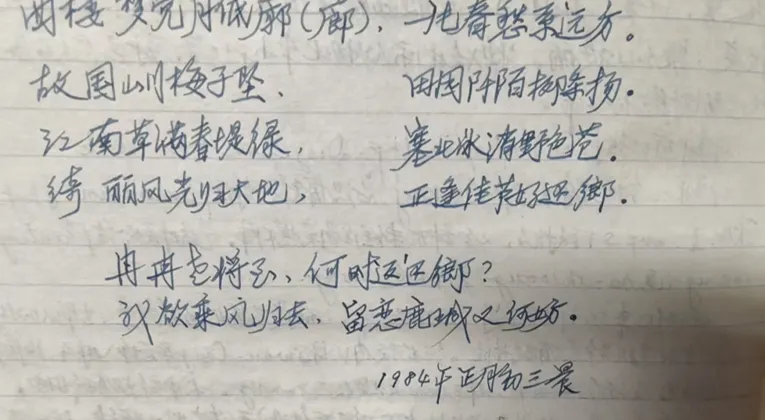 西楼梦完月低廊（廊），一片春愁系远方。
故国山川梅子坠、 田园阡陌柳条扬。
江南草满春堤绿， 塞北冰消野色苍。
绮丽风光归大地， 正逢佳节好还鄉。
冉冉老将至、何时返还鄉？
我欲乘风归去，留恋鹿城又何妨。
1984年正月初三晨